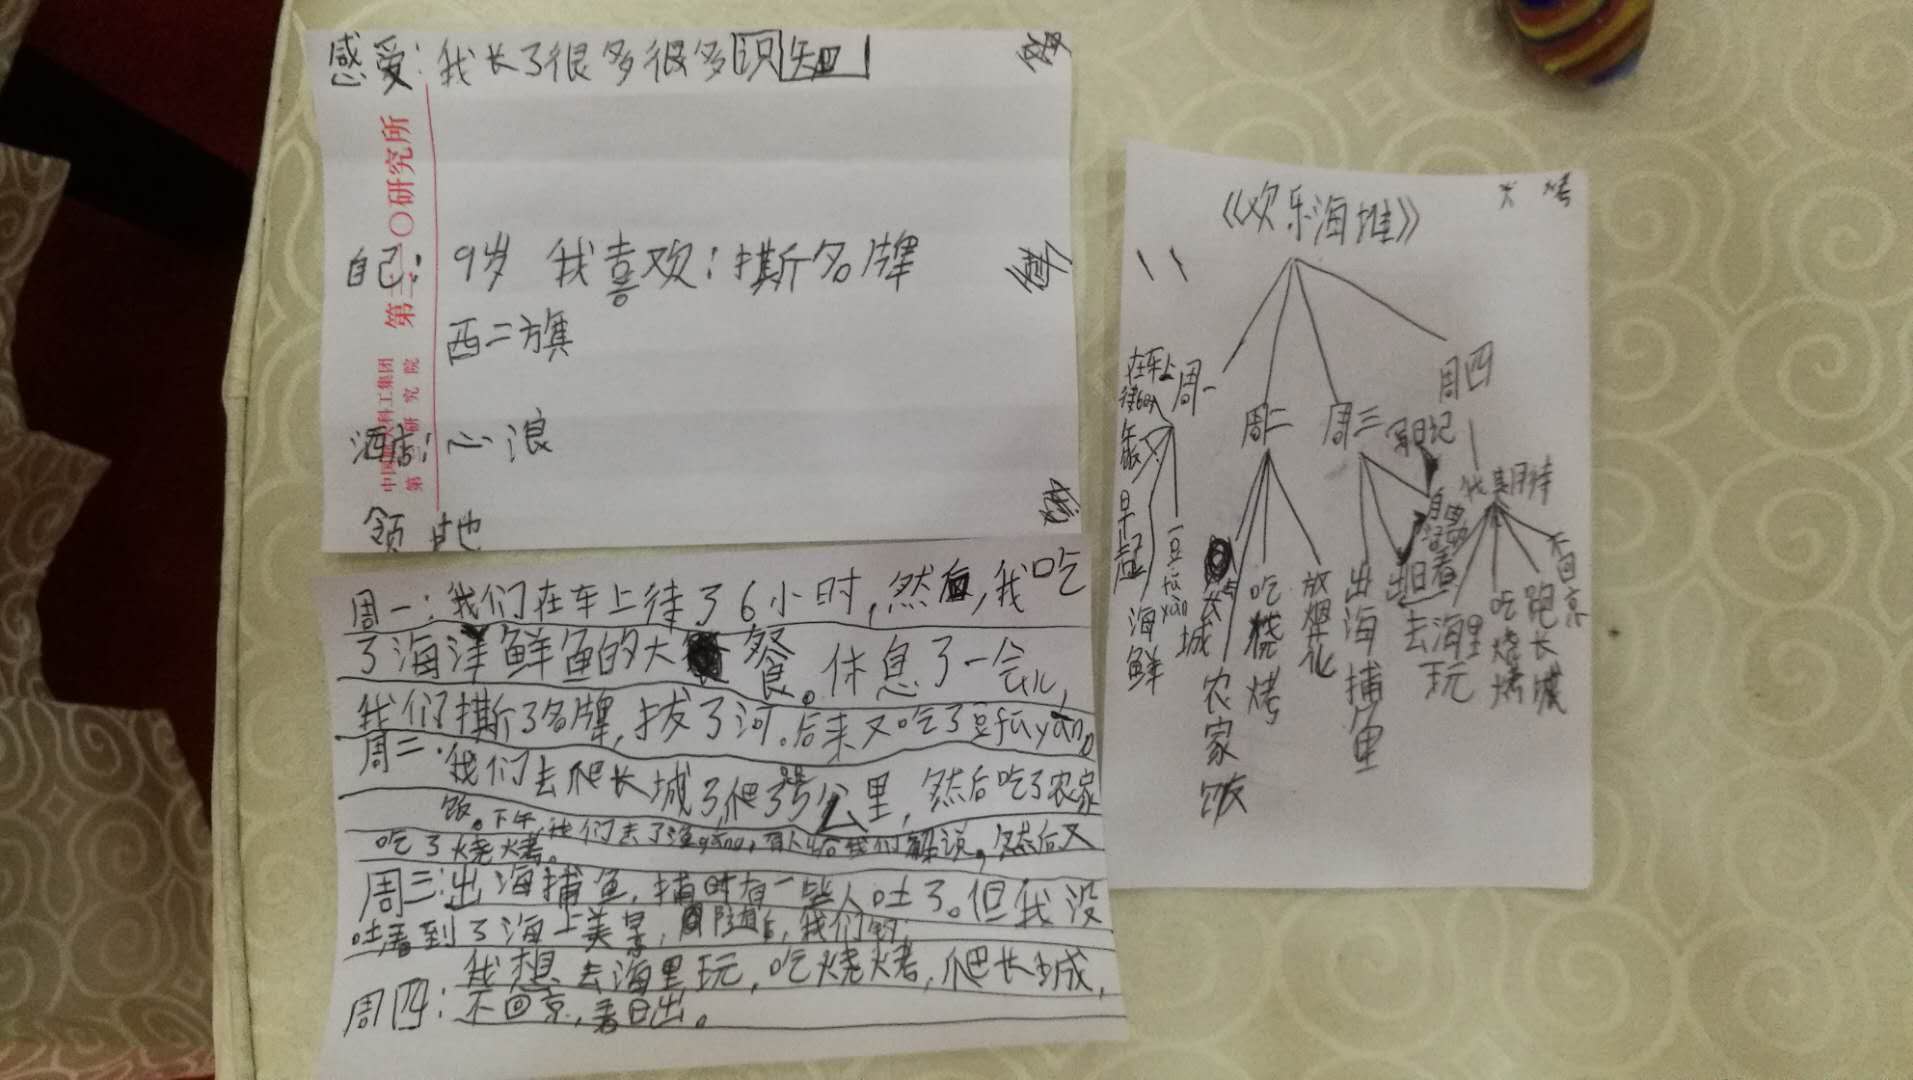 感受：我长了很多很多识知
自己：9岁 我喜欢：撕名牌
西二旗
酒店：心浪
领地
第二〇研究所
周一：我们在车上待了6小时，然后，我吃
了海洋鲜鱼的大餐。休息了一会儿，
我们撕了名牌，拔了河。后来又吃了豆fǔ yàn。
周二：我们去爬长城了，爬了3公里，然后吃了农家
饭。下午，我们去了渔gǎng，有人给我们解说，然后又
吃了烧烤。
周三：出海捕鱼，捕时有一些人吐了。但我没
吐，看到了海上美景，随后，我们
我想去海里玩，吃烧烤，爬长城，
周四：不回京，看日出。
《欢乐海滩》
周一
周二
周三
周四
在车上
待6小时
早起
海鲜
豆fǔ yàn
长城
农家饭
吃烧烤
放烟花
出海捕鱼
写日记
自由活动
看日出
我期待
去海里玩
吃烧烤
爬长城
不回京